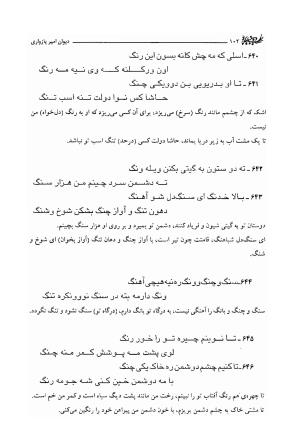 ۱۰۲ دیوان امیر پازواری
۶۴۰- اسلی که مه چش کانه بسون این رنگ
اون ورکلنه که وی نیه مه رنگ
۶۴۱- تا او بدریویی بن دوویکی چنگ
حاشا کس نوا دولت تنه اسب تنگ
اشک که از چشمم مانند رنگ (سرخ) می‌ریزد، برای آن کسی می‌ریزد که او به رنگ (دل‌خواه) من
نیست.
تا یک مشت آب به زیر دریا بماند، حاشا دولت کسی (درحد) تنگ اسب تو نباشد.
۶۴۲- ته دو ستون به گیتی بکتن ویله ونگ
ته دشمن سرد چینم من هزار سنگ
۶۴۳- بالا خدنگ ای سنگدل شو آهنگ
دهون تنگ و آواز چنگ بشکن شوخ وشنگ
دوستان تو به گیتی شیون و فریاد کنند، دشمن تو بمیرد و بر روی او هزار سنگ بچینم.
ای سنگ‌دل شباهنگ، قامتت چون تیر است، با آواز چنگ و دهان تنگ (آواز بخوان) ای شوخ و
شنگ.
۶۴۴- سنگ و چنگ و ونگ ره نیه هیچی آهنگ
ونگ دارمه بته در سنگ نوونکره تنگ
سنگ و چنگ و بانگ را آهنگی نیست، به درگاه تو بانگ دارم، (درگاه تو) سنگ نشود و تنگ نگردد.
۶۴۵- تا نوینم چیره تو را خور رنگ
لوی پشت مه پوشش کمر مته چنگ
۶۴۶- تا کنیم چشم دوشمن ره خاک یکی چنگ
با مه دوشمن خین کنی شه جومه رنگ
تا چهره‌ی هم رنگ آفتاب تو را نبینم، رخت من مانند پشت دیگ سیاه است و کمر من خم است.
تا مشتی خاک به چشم دشمن بریزم، با خون دشمن من پیراهن خود را رنگین می‌کنی.